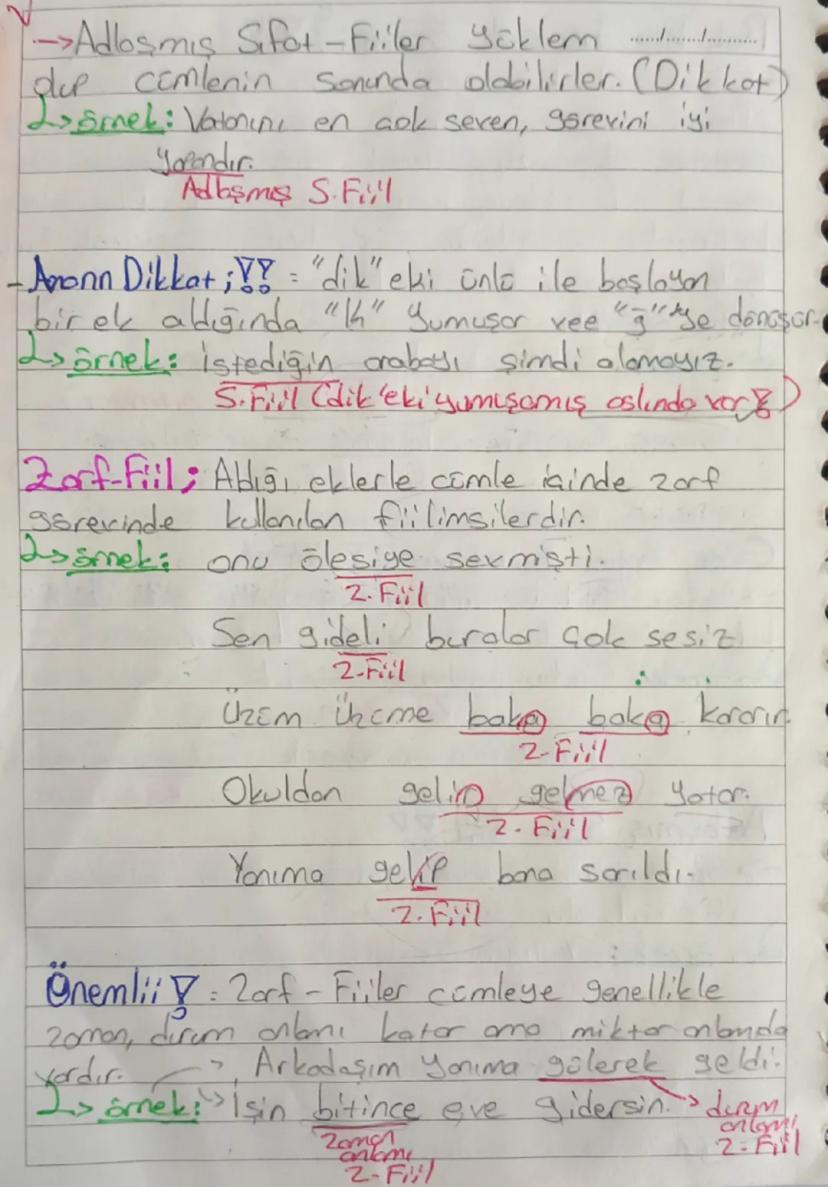 →Adlaşmış Sıfat-Fiiler yüklem ...../...../.........
olup cümlenin sonunda olabilirler. (Dikkat)
↳ örnek: Vatanını en çok seven, görevini iyi
yapandır.
Adlaşmış S.Fiil
- Amann Dikkat;!! = "dik" eki ünlü ile başlayan
bir ek aldığında "k" yumuşar vee "ğ" 'ye dönüşür.
↳ örnek: istediğin arabayı şimdi alamayız.
S.Fiil (dik'eki yumuşamış aslında var!)
Zarf-Fiil; Aldığı eklerle cümle içinde zarf
görevinde kullanılan fiilimsilerdir.
↳ örnek: onu ölesiye sevmişti.
Z.Fiil
Sen gideli buralar çok sesiz
Z-Fiil
Üzüm üzüme baka baka kararır.
Z-Fiil
Okuldan gelir gelmez yatar.
Z-Fiil
Yanıma gelip bana sarıldı.
Z-Fiil
Önemlii! = Zarf-Fiiler cümleye genellikle
zaman, durum anlamı katar ama miktar anlamıda
vardır. → Arkadaşım yanıma gülerek geldi.
↳ örnek: → İşin bitince eve gidersin. → durum
anlamı
Z-Fiil
Zaman
anlamı
Z-Fiil